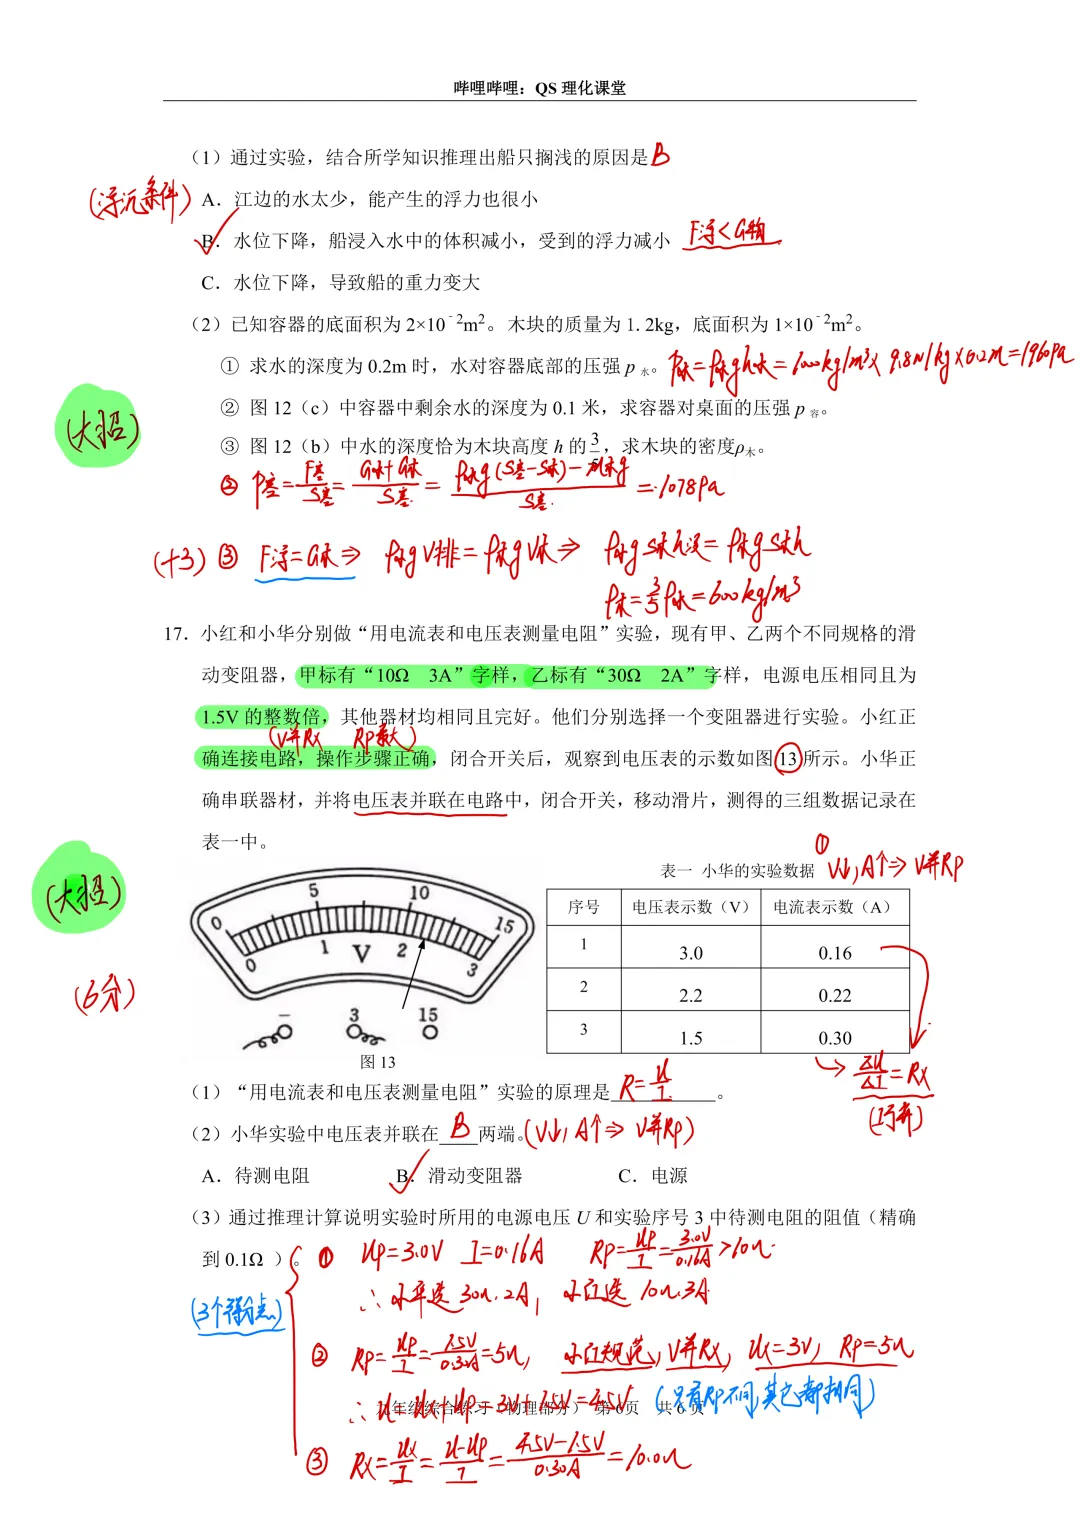 哔哩哔哩：QS 理化课堂
（1）通过实验，结合所学知识推理出船只搁浅的原因是 B
(浮沉条件) A．江边的水太少，能产生的浮力也很小
B．水位下降，船浸入水中的体积减小，受到的浮力减小 F浮<G物
C．水位下降，导致船的重力变大
（2）已知容器的底面积为 2×10⁻²m²。木块的质量为 1. 2kg，底面积为 1×10⁻²m²。
① 求水的深度为 0.2m 时，水对容器底部的压强 p 水。 P水=ρ水gh水=1000kg/m³×9.8N/kg×0.2m=1960Pa
(大招) ② 图 12（c）中容器中剩余水的深度为 0.1 米，求容器对桌面的压强 p 容。
③ 图 12（b）中水的深度恰为木块高度 h 的 3/5，求木块的密度ρ木。
=1078Pa
(+3) ③ F浮=G木⇒ ρ水gV排=ρ木gV木⇒ ρ水gS木h浸=ρ木gS木h
ρ木=3/5ρ水=600kg/m³
17．小红和小华分别做“用电流表和电压表测量电阻”实验，现有甲、乙两个不同规格的滑
动变阻器，甲标有“10Ω 3A”字样，乙标有“30Ω 2A”字样，电源电压相同且为
1.5V 的整数倍，其他器材均相同且完好。他们分别选择一个变阻器进行实验。小红正
(V并Rx Rp最大)
确连接电路，操作步骤正确，闭合开关后，观察到电压表的示数如图 13 所示。小华正
确串联器材，并将电压表并联在电路中，闭合开关，移动滑片，测得的三组数据记录在
表一中。
(大招)
(6分)
0 5 10 15
0 1 V 2 3
− 3 15
图 13
表一 小华的实验数据 ① V↓,A↑⇒V并Rp
序号 电压表示数（V） 电流表示数（A）
1 3.0 0.16
2 2.2 0.22
3 1.5 0.30
ΔU/ΔI=Rx
(巧解)
（1）“用电流表和电压表测量电阻”实验的原理是 R=U/I 。
（2）小华实验中电压表并联在 B 两端。(V↓,A↑⇒V并Rp)
A．待测电阻 B．滑动变阻器 C．电源
（3）通过推理计算说明实验时所用的电源电压 U 和实验序号 3 中待测电阻的阻值（精确
到 0.1Ω ）。 ① Up=3.0V I=0.16A Rp=Up/I=3.0V/0.16A>10Ω
(3个得分点) ∴小华选30Ω.2A, 小红选10Ω.3A
② Rp=Up/I=1.5V/0.3A=5Ω, 小红规范,V并Rx, Ux=3V, Rp=5Ω
∴U=Ux+Up=3V+1.5V=4.5V (只有Rp不同,其它都相同)
九年级综合练习（物理部分） 第6页 共 6 页
③ Rx=Ux/I=U-Up/I=4.5V-1.5V/0.30A=10.0Ω